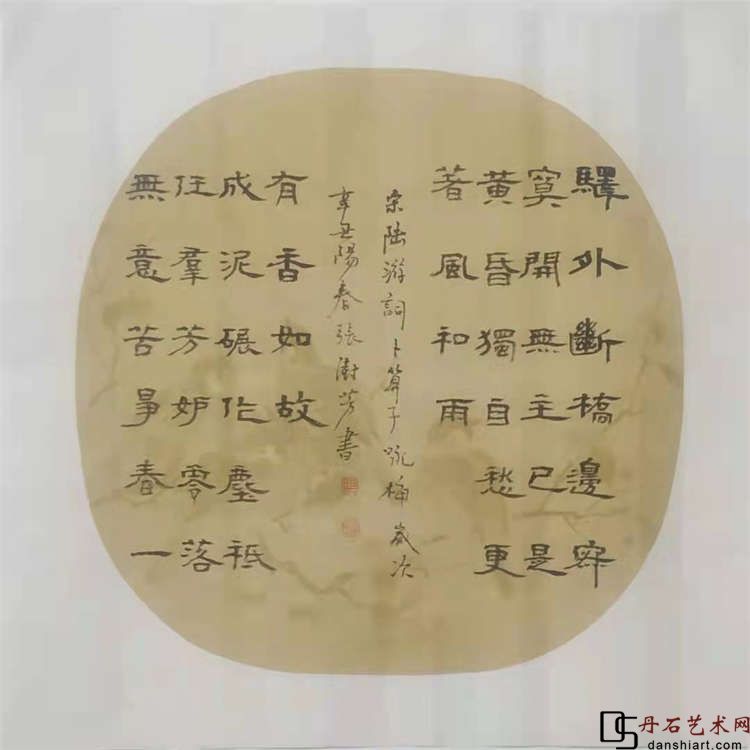 驛外斷橋邊寂
寞開無主已是
黄昏獨自愁更
著風和雨
無意苦爭春一
任羣芳妒零落
成泥碾作塵祗
有香如故
宋陸游詞卜算子詠梅歲次
辛丑陽春張樹芳書
DS 丹石艺术网
danshiart.com